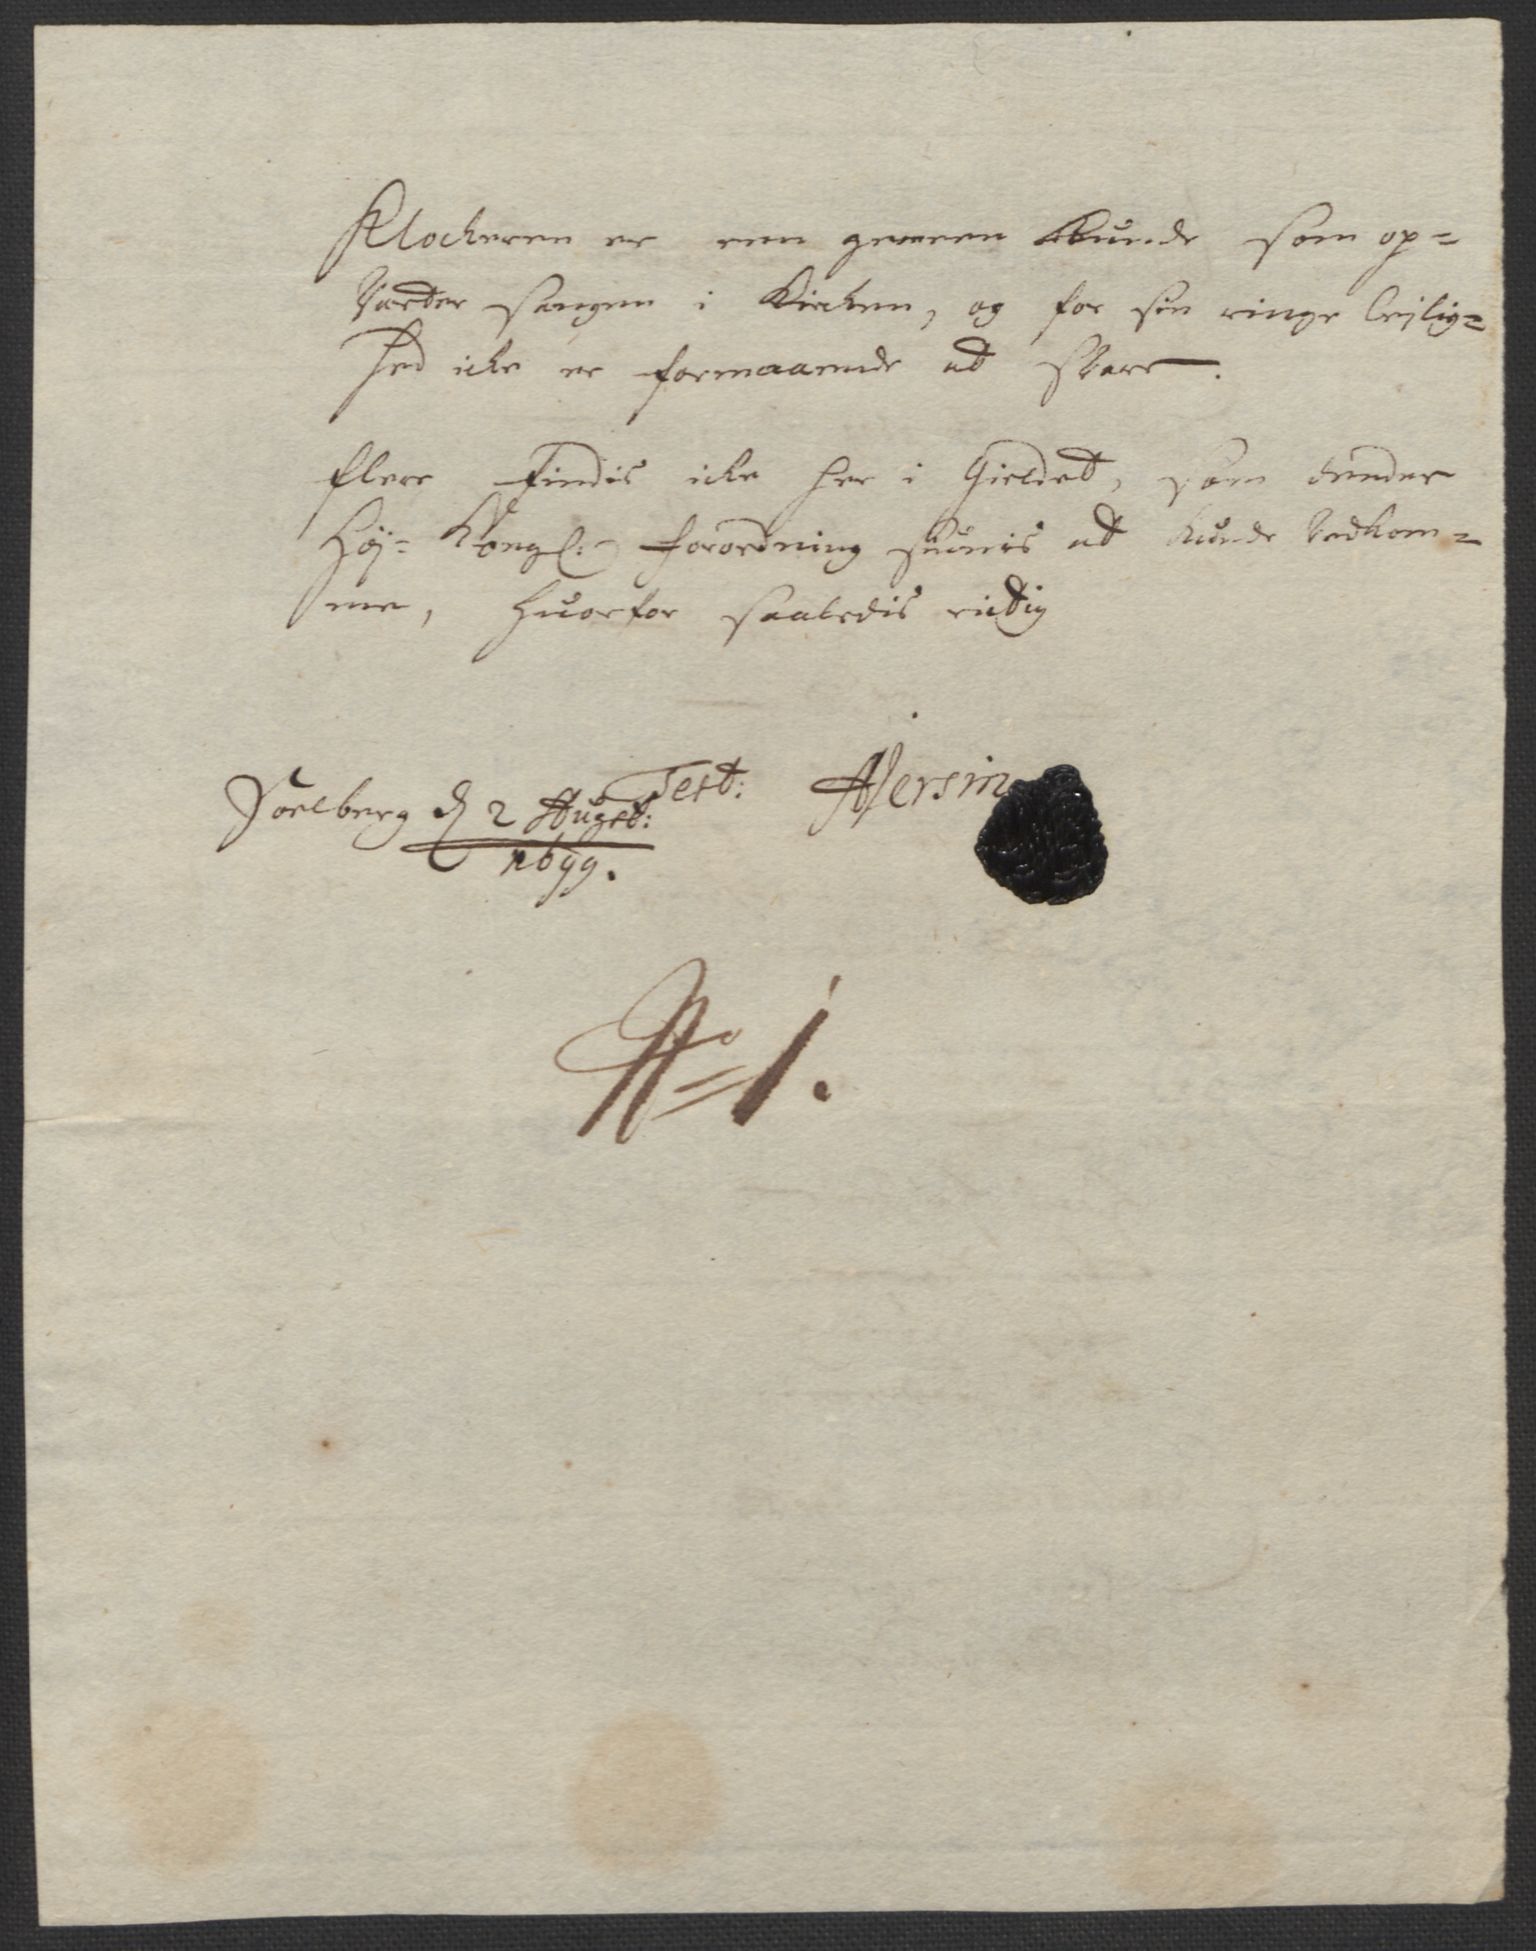 Klockeren er een gemeen bunde som op=
varter sangen i Kirken, og for sin ringe leylig=
hed icke er formaaende at svare.
flere findis icke her i Gieldet, som denne
Høj= Kongl: forordning siunis at kunde vedkom=
me, huorfor saaledis rigtig
Test:
Soelberg d 2 August:
1699.
No 1.